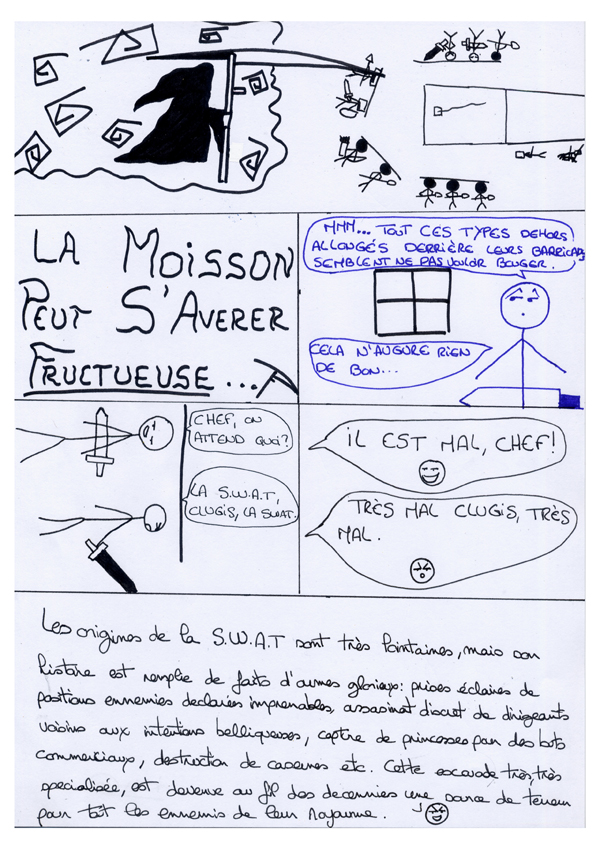 LA MOISSON
PEUT S'AVERER
FRUCTUEUSE...
MMM... TOUT CES TYPES DEHORS
ALLONGÉS DERRIÈRE LEURS BARRICADES
SEMBLENT NE PAS VOULOIR BOUGER.
CELA N'AUGURE RIEN
DE BON...
CHEF, ON
ATTEND QUOI?
LA S.W.A.T,
CLUGIS, LA SWAT.
IL EST MAL, CHEF!
TRÈS MAL CLUGIS, TRÈS
MAL.
Les origines de la S.W.A.T sont très lointaines, mais son
histoire est remplie de faits d'armes glorieux: prises éclaires de
positions ennemies declarées imprenables, assasinat discret de dirigeants
voisins aux intentions belliqueuses, captre de princesses par des buts
commerciaux, destruction de casernes etc. Cette escouade très, très
specialisée, est devenue au fil des decennies une source de terreur
pour tout les ennemis de leur Royaume.